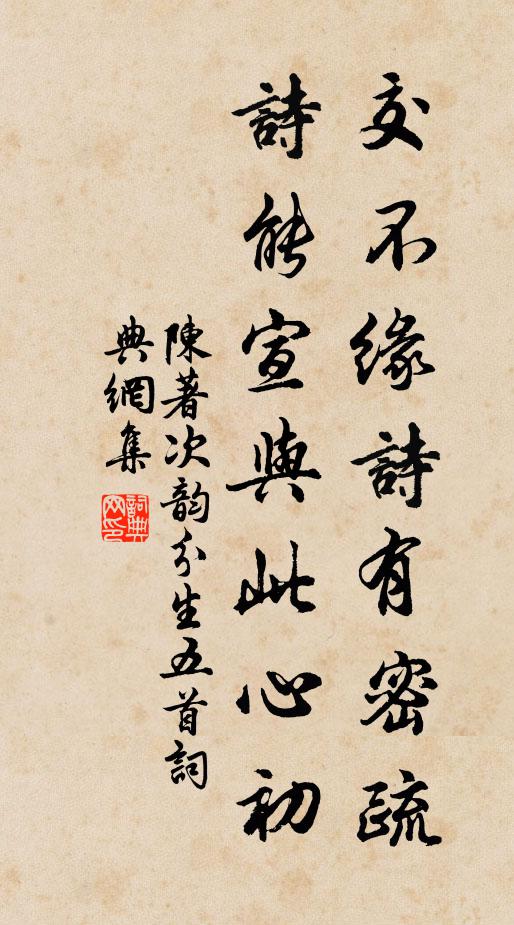 交不緣詩有密疏
詩能宣與此心初
陳著次韵分生五首詞
典網集
詞典網印